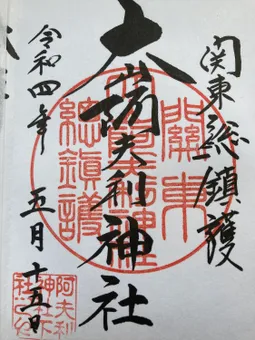 関東総鎮護
大山阿夫利神社
令和四年 五月 十五日
關東
總鎭護
阿夫利
神社下